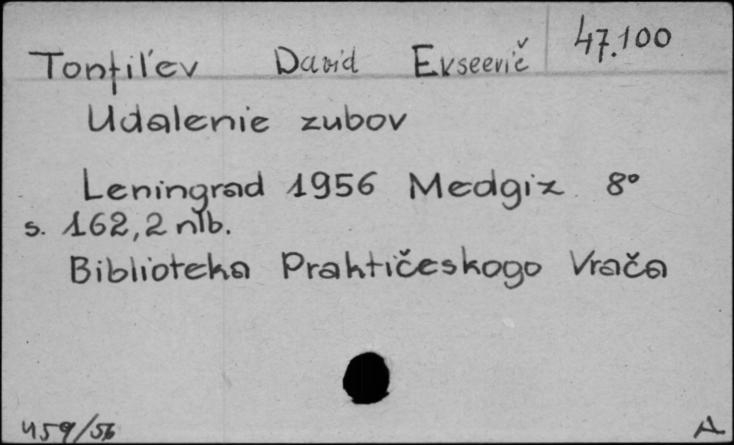 47.100
Tonfil'ev David Evseevič
Udalenie zubov
Leningrad 1956 Medgiz 8°
s. 162, 2 nlb.
Biblioteka Praktičeskogo Vrača
459/56 A